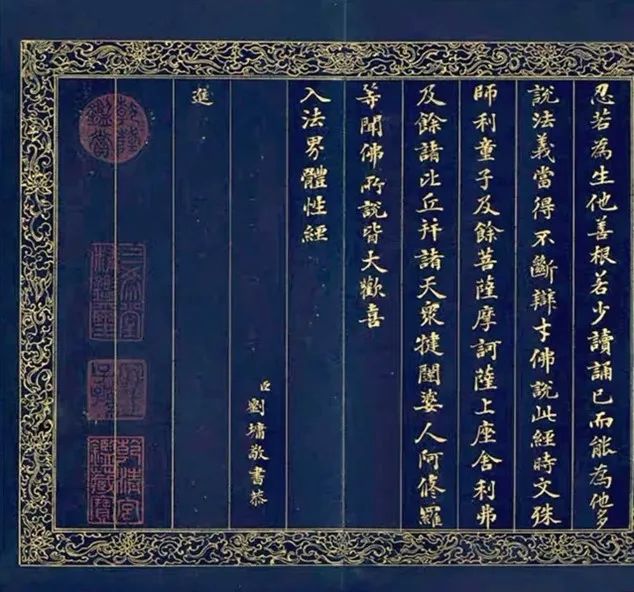 忍若為生他善根若少讀誦已而能為他多
說法義當得不斷辯才佛說此經時文殊
師利童子及餘菩薩摩訶薩上座舍利弗
及餘諸比丘并諸天眾犍闥婆人阿修羅
等聞佛所說皆大歡喜
入法界體性經
臣劉墉敬書恭
進
乾隆鑑賞
三希堂精鑑璽
宜子孫
乾清宮鑑藏寶